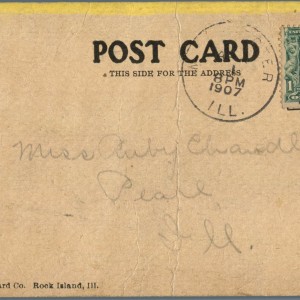 POST CARD
THIS SIDE FOR THE ADDRESS
1
8 PM
1907
ILL.
1
Miss Ruby Chandl
Pearl
Ill.
ard Co. Rock Island, Ill.